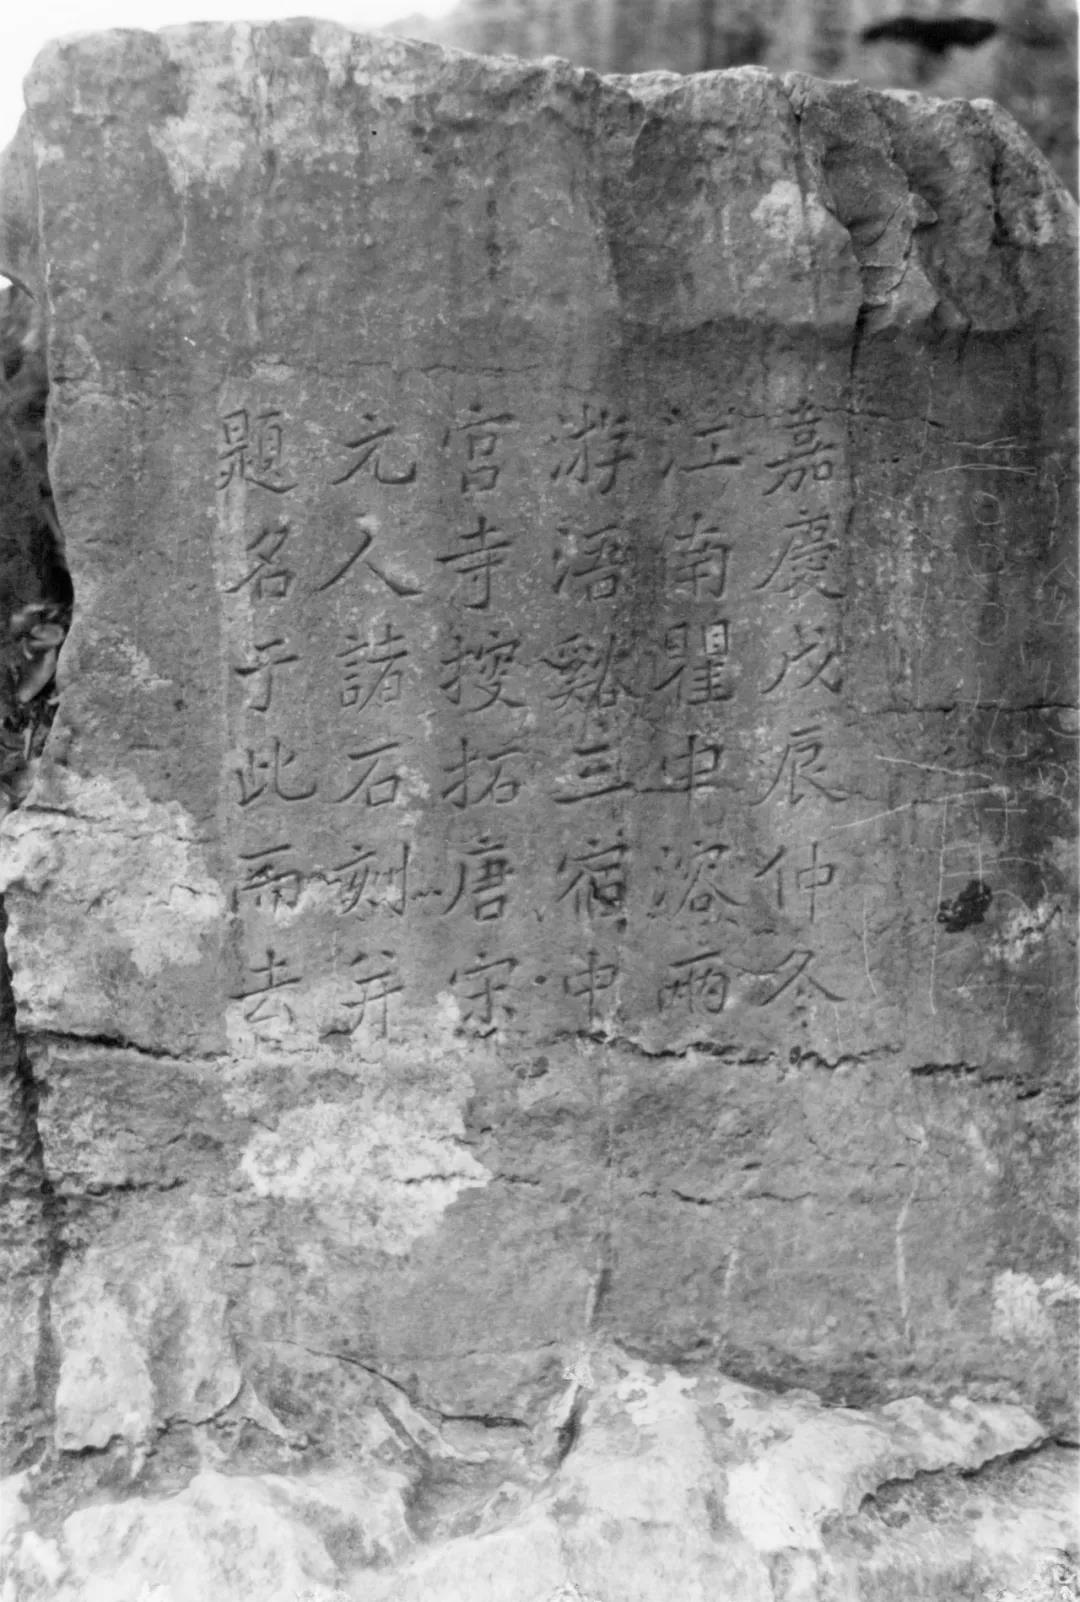 嘉慶戊辰仲冬
江南瞿中溶兩
游浯谿三宿中
宮寺搜拓唐宋
元人諸石刻并
題名于此而去